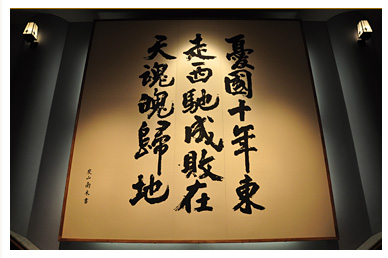 憂國十年東
走西馳成敗在
天魂魄歸地